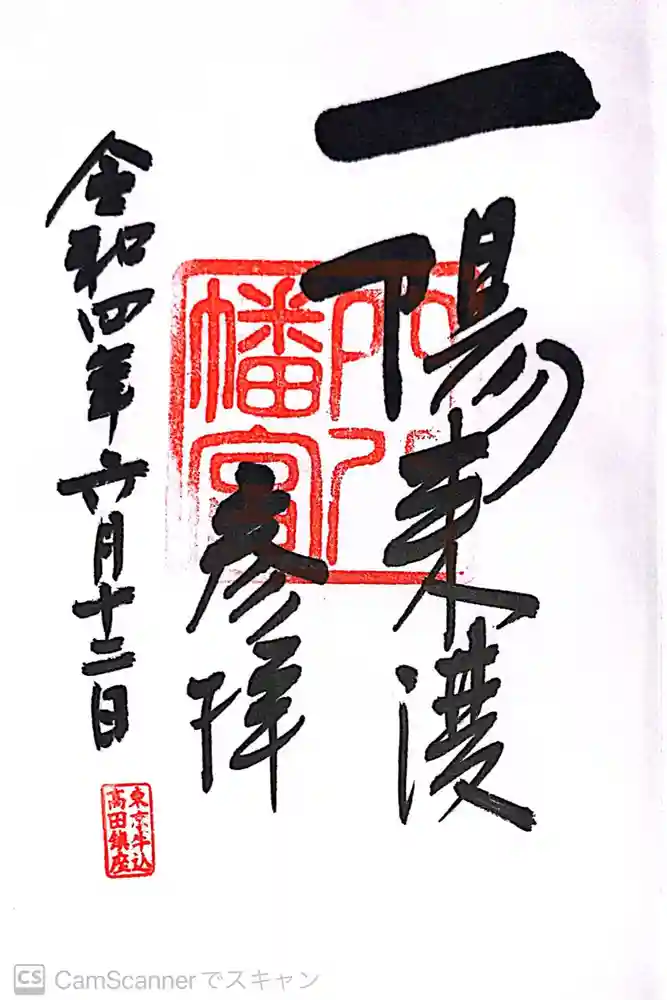 一陽来復
参拝
令和四年六月十二日
八幡宮
東京牛込
高田鎮座
CS CamScannerでスキャン